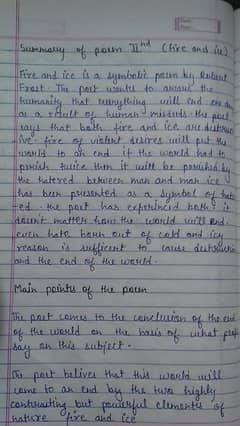 Summary of poem IInd (Fire and ice)
Fire and ice is a symbolic poem by Robert
Frost. The poet wants to aware the
humanity that everything will end one day
as a result of human misdeeds. the poet
says that both fire and ice are destruct
ive. fire of violent desires will put the
world to an end if the world had to
perish twice then it will be perished by
the hatered between man and man ice
has been presented as a symbol of hatr
ed. the poet has exprinced both. it
doesnt matter how the world will end.
even hate born out of cold and icy
reason is sufficent to cause destruction
and the end of the world.
Main points of the poem
The poet comes to the conclusion of the end
of the world on the basis of what people
say on this subject.
The poet belives that this world will
come to an end by the two highly
contrasting but powerful elements of
nature fire and ice